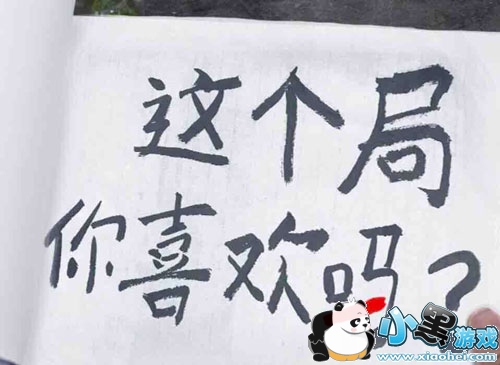 这个局
你喜欢吗?
小黑游戏
www.xiaohei.com